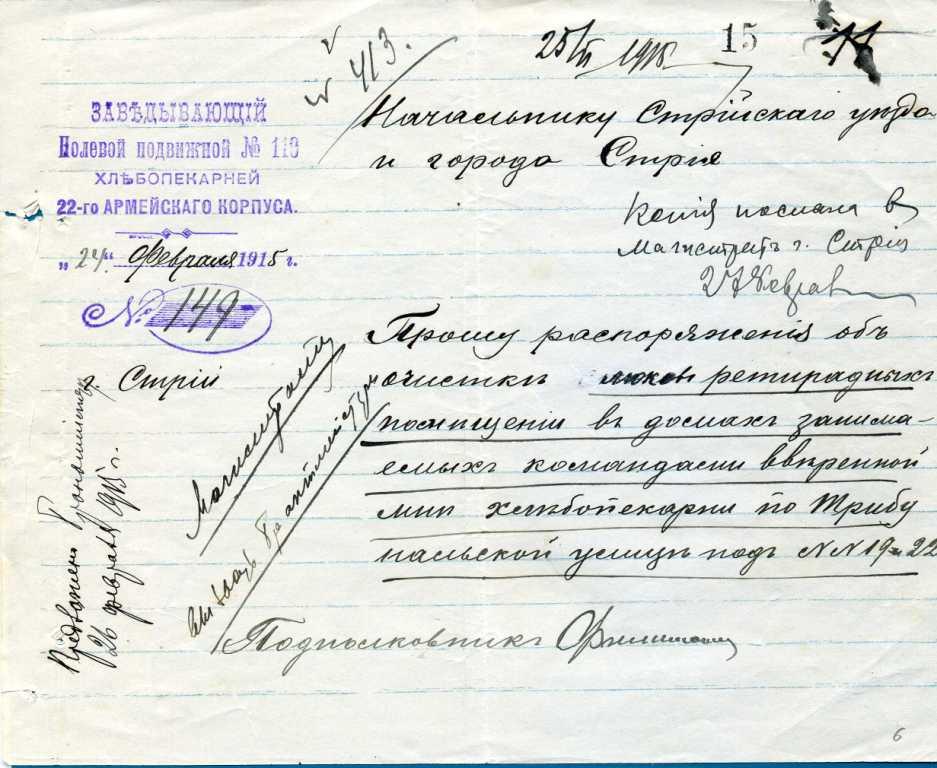 № 413.
25/II 1915
15
11
ЗАВѢДЫВАЮЩІЙ
Полевой подвижной № 113
ХЛѢБОПЕКАРНЕЙ
22-го АРМЕЙСКАГО КОРПУСА.
„24“ Февраля 1915 г.
№ 149
г. Стрій
Начальнику Стрійскаго уѣзда
и города Стрія
Копія послана в
Магистратъ г. Стрія
27 Феврал
Прошу распоряженія объ
очисткѣ люков ретирадныхъ
помѣщеній въ домахъ занима-
емыхъ командами ввѣренной
мнѣ хлѣбопекарни по Трибу
нальской улицѣ подъ NN 19 и 22
Подполковникъ
Магистратъ
26 февраля 1915 г.
6